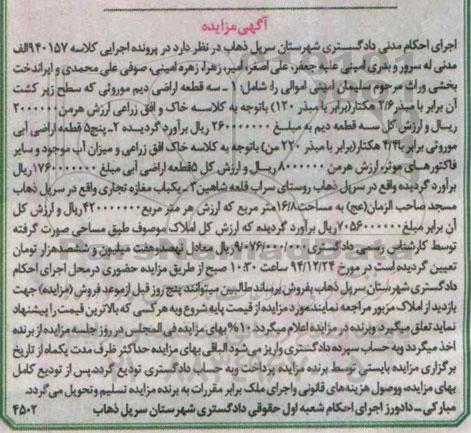 آگهی مزایده
اجرای احکام مدنی دادگستری شهرستان سرپل ذهاب در نظر دارد در پرونده اجرایی کلاسه ۹۴۰۱۵۷الف
مدنی له سرور و بدری امینی علیه جعفر، علی اصغر، امیر، زهرا، زهره امینی، صوفی علی محمدی و ایراندخت
بخشی وراث مرحوم سلیمان امینی اموالی را: شامل: ۱ـ سه قطعه اراضی دیم موروثی که سطح زیر کشت
آن برابر با متر۲/۶ هکتار(برابر با میذر ۱۲۰) باتوجه به کلاسه خاک و افق زراعی ارزش هرمن ۲۰۰۰۰۰۰
ریسال و ارزش کل سه قطعه دیم به مبلغ ۲۶۰۰۰۰۰۰۰ ریال برآورد گردیده ۲ـ پنج۵ قطعه اراضی آبی
موروثی برابر با۴/۴ هکتار(برابر با میذر ۲۲۰ من) باتوجه به کلاسه خاک افق زراعی و میزان آب موجود و سایر
فاکتورهای موثر، ارزش هرمن ۸۰۰۰۰۰۰ ریسال و ارزش کل ۵قطعه اراضی آبی مبلغ ۱۷۶۰۰۰۰۰۰۰ ریال
برآورد گردیده واقع در سرپل ذهاب روستای سراب قلعه شاهین۳ـ یکباب مغازه تجاری واقع در سرپل ذهاب
مسجد صاحب الزمان(عج) به مساحت ۱۶/۸متر مربع که ارزش هر متر مربع۴۲۰۰۰۰۰۰۰ریال و ارزش کل
آن برابر مبلغ ۷۰۵۶۰۰۰۰۰۰ ریال برآورد گردیده که ارزش کل املاک موصوف طبق مساحی صورت گرفته
توسط کارشناس رسمی دادگستری۹/۰۷۶/۰۰۰/۰۰۰ریال معادل نهصدوهفت میلیون و ششصدهزار تومان
تعیین گردیده است در مورخ ۹۴/۱۲/۲۴ ساعت ۱۰:۳۰ صبح از طریق مزایده حضوری درمحل اجرای احکام
دادگستری شهرستان سرپل ذهاب بفروش برساند طالبین میتوانند پنج روز قبل ازموعد فروش (مزایده) جهت
بازدید از املاک مزبور مراجعه نمایند مورد مزایده از قیمت پایه شروع وبه هرکسی که بالاترین قیمت را پیشنهاد
نماید تعلق میگیرد وبرنده در مزایده اعلام میگردد ۱۰% بهای مزایده فی المجلس در روز جلسه مزایده از برنده
اخذ میگردد وبه حساب سپرده دادگستری واریز می‌شود الباقی بهای مزایده حداکثر ظرف مدت یکماه از تاریخ
برگزاری مزایده بایستی توسط برنده مزایده پرداخت وبه حساب دادگستری تودیع گردد.پس از تودیع کامل
بهای مزایده، ووصول هزینه‌های قانونی واجرای ملک برابر مقررات به برنده مزایده تسلیم وتحویل می‌گردد.
مبارکی ـ دادورز اجرای احکام شعبه اول حقوقی دادگستری شهرستان سرپل ذهاب ۴۵۰۲